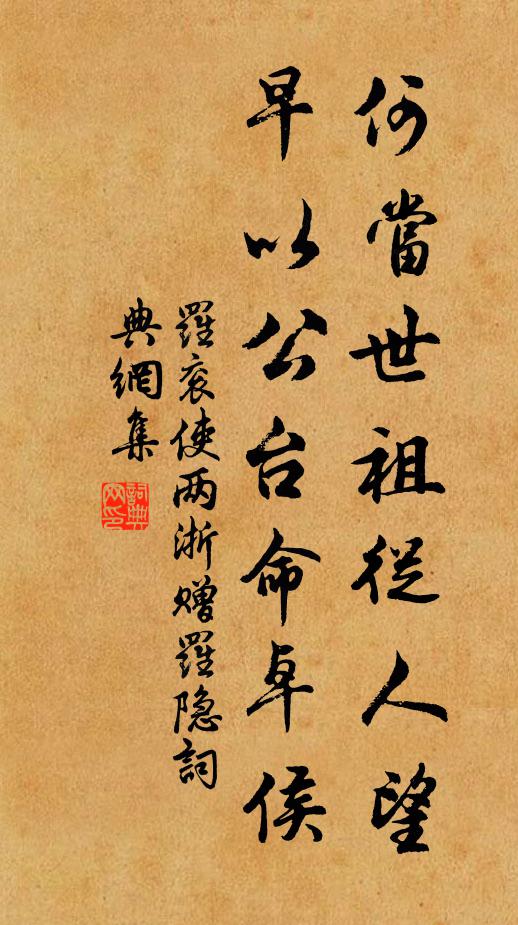 何當世祖從人望
早以公台命卓侯
羅衮使两浙赠羅隐詞
典網集
詞典
网印